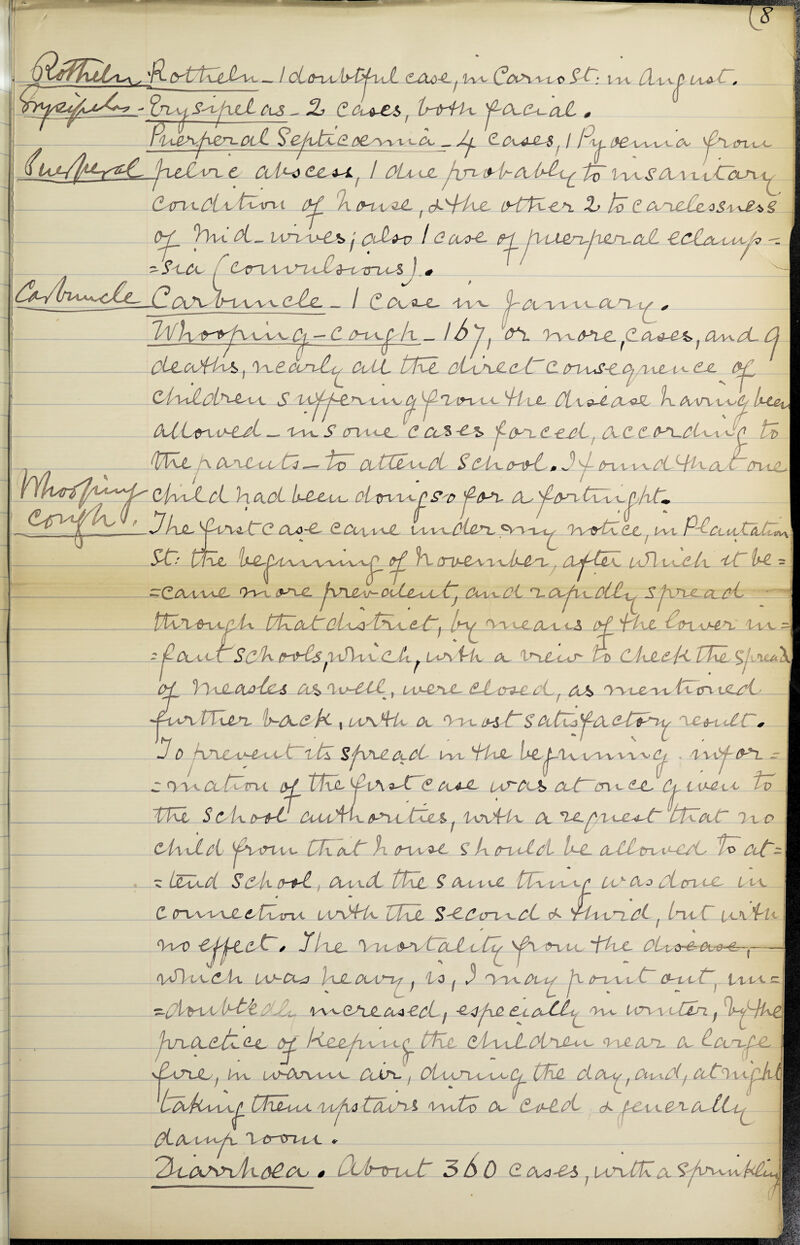 (8
Rotheln Rotheln - 1 doubtful case, in Carno St: in August.
Erysipelas - Erysipelas - 2 cases, both facial.
Puerperal Septicoemia - 4 cases, 1 Pyoemia from
Puerperal pelvic abscess, 1 due probably to insanitary
condition of house, & the other 2 to carelessness
of Mid-wives; also 1 case of puerperal eclamp =
= sia (convulsions).
Carbuncle Carbuncle - 1 case in January.
Whooping-cough - 167, or more, cases, and 9
deaths, nearly all the direct consequence of
children suffering from the disease having been
allowed - in some cases forced, according to
the parents - to attend School. I found that one
Whooping child had been doing so for a fortnight.
cough. The first case came under my notice, in Plantation
St: the beginning of November, after which it be =
= came more prevalent, and rapidly spread
through that district, by means of the lower in =
= fant Schools, which, with a view to check the spread
of Measles as well, were closed, as mentioned
further back, with a most satisfactory result.
To prevent its spread in the beginning infor =
= mation of the first case was at once given to
the School authorities, with a request that no
child from that house should be allowed to at =
= tend School, and the same thing was done in
connection with the second & third, but with
no effect. The mortality from the disease,
which was heavy, is, I may point out, un =
= doubtedly increased, especially in winter, by the
practice of keeping the children near a large
fire, in warm air, during the day, and, at night
taking them upstairs into a cold & generally
damp room.
Diarrhoea. About 360 cases, with a sprinkling